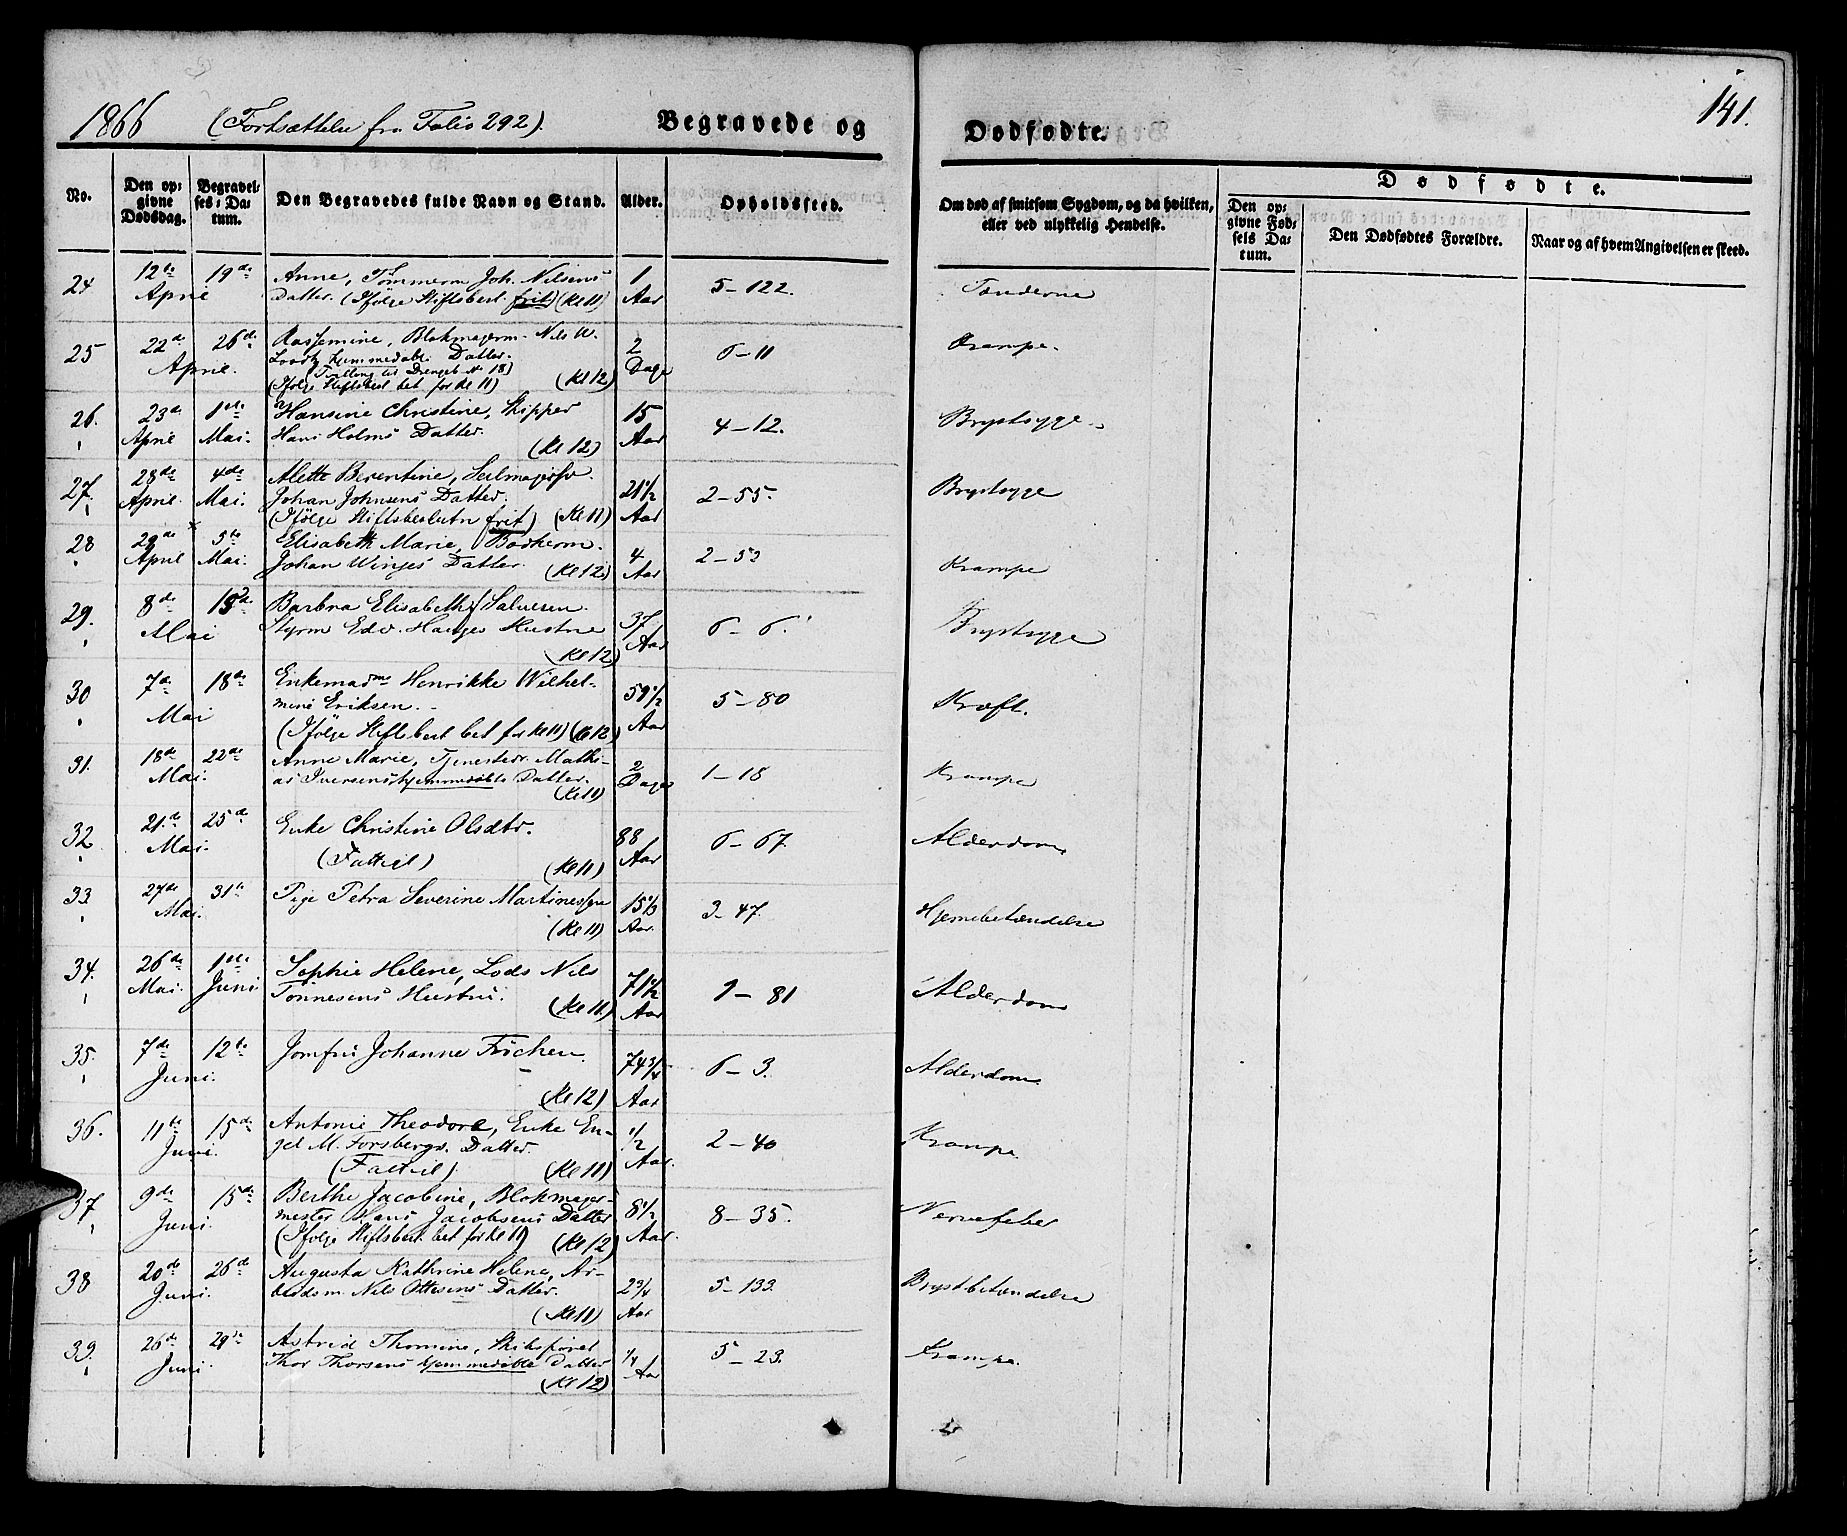 1866 (Fortsættelse fra Folio 292). Begravede og Dødfødte. 141.
No. Den opgivne Dødsdag. Begravelses-Datum. Den Begravedes fulde Navn og Stand. Alder. Opholdssted. Om død af smitsom Sygdom, og da hvilken, eller ved ulykkelig Hendelse. Dødfødte.
Den opgivne Fødsels Datum. Den Dødfødtes Forældre. Naar og af hvem Angivelsen er skeed.
24 12te April 19de Anne, Tømmerm Joh. Nilsens 1 Aar 5-122. Tænderne
Datter. (Ifölge Stiftsbesl. frit) (Kl 11)
25 22de April. 26de Rasmine, Blokmagerm. Nils W. 2 Dage 6-11 Krampe.
hjemmedøbt Datter.
(Ifölge Stiftsbesl bet for Kl 11) (Kl 12)
26. 23de April 1ste Mai. Hansine Christine, Skipper 15 Aar 4-12. Brystsyge.
Hans Holms Datter. (Kl 12)
27. 28de April. 4de Mai. Alette Berentine, Seilmagersv. 21 1/2 Aar 2-55. Brystsyge
Johan Johnsens Datter.
(Ifölge Stiftsbeslutn frit) (Kl 11)
28 29de April 5te Mai. Elisabeth Marie, 4 Aar 2-53 Krampe
Johan Winges Datter. (Kl 12)
29. 8de Mai Barbra Elisabeth f Salvesen 37 Aar 6-6. Brystsyge
Styrm Edv. Hustru
(Kl 12)
30 7de Mai 18de Enkemadme Henrikke Wilhel- 59 1/2 Aar 5-80 Kræft.
mine Eriksen.
(Ifölge Stiftsbesl bet for Kl 11) (Kl 12)
31. 18de Mai. 22de Anne Marie, Tjenestedr. Mathi- 2 Dage 1-18 Krampe
as Iversens hjemmedøbte Datter.
(Kl 11)
32 21de Mai. 25de Enke Christine Olsdtr. 88 Aar 6-67. Alderdom
(Fattigl) (Kl 11)
33 27de Mai. 31te Pige Petra Severine Martinessen 15 1/3 Aar. 3-47. Hjernebetændelse
(Kl 11)
34. 26de Mai. 1ste Juni Sophie Helene, Lods Nils 71 1/2 Aar 1-81 Alderdom
Tönnesens Hustru. (Kl 11.)
35. 7de Juni. 12te Jomfru Johanne 74 3/4 Aar 6-3. Alderdom
(Kl 12)
36. 11te Juni. 15de Antonie Theodora, Enke En- 1/2 Aar. 2-40 Krampe
gel M. Forsbergs. Datter.
(Fattigl) (Kl 11)
37 9de Juni. 15de Berthe Jacobine, Blokmager- 8 1/2 Aar. 8-35. Nervefeber
mester Hans Jacobsens Datter
(Ifölge Stiftsbesl. bet for Kl 11) (Kl 12)
38 20de Juni. 26de Augusta Kathrine Helene, Ar- 2 3/4 Aar 5-133. Brystbetændelse
beidsm. Nils Ottesens Datter.
(Kl 11)
39. 26de Juni. 29de Astrid Thomine, Skibsförer 1/4 Aar 5-23. Krampe.
Thor Thorsens hjemmedøbte Datter
(Kl 12)